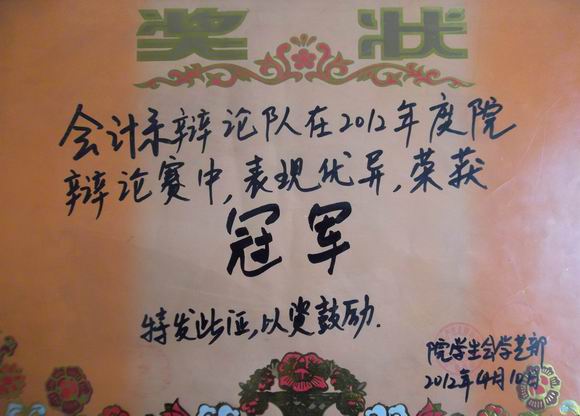 奖状
会计系辩论队在2012年度院
辩论赛中,表现优异,荣获
冠军
特发此证,以资鼓励.
院学生会学艺部
2012年4月10日